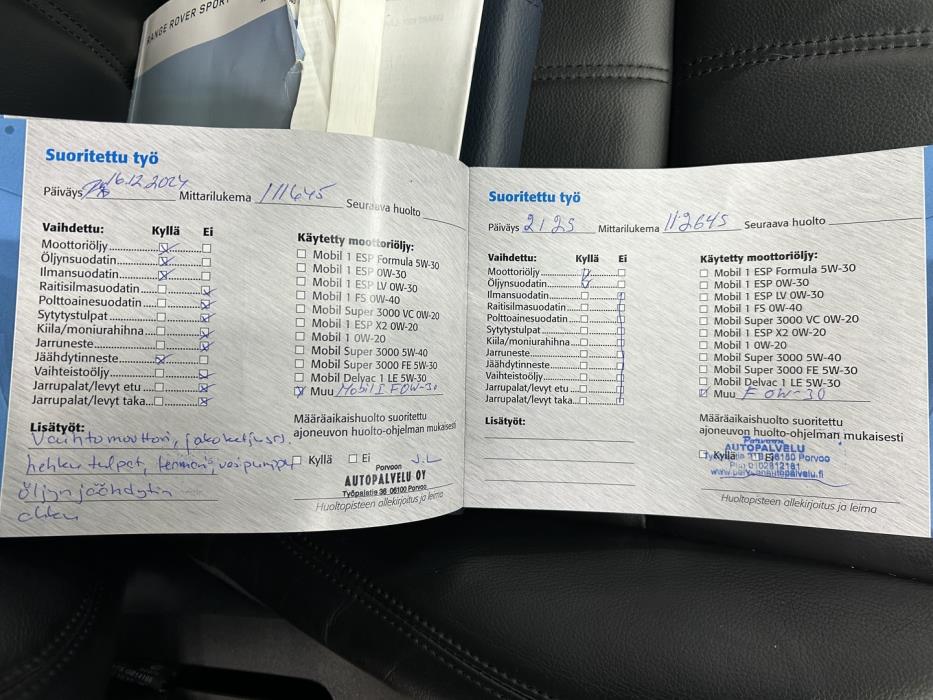 RANGE ROVER SPORT
Suoritettu työ
Päiväys 16.12.2024 Mittarilukema 111645 Seuraava huolto
Vaihdettu: Kyllä Ei
Moottoriöljy
Öljynsuodatin
Ilmansuodatin
Raitisilmasuodatin
Polttoainesuodatin
Sytytystulpat
Kiila/moniurahihna
Jarruneste
Jäähdytinneste
Vaihteistoöljy
Jarrupalat/levyt etu
Jarrupalat/levyt taka
Lisätyöt:
Vaihtomoottori, jakoketjusrs.
hehkutulpat, termari, vesipumppu
öljynjäähdytin
Käytetty moottoriöljy:
Mobil 1 ESP Formula 5W-30
Mobil 1 ESP 0W-30
Mobil 1 ESP LV 0W-30
Mobil 1 FS 0W-40
Mobil Super 3000 VC 0W-20
Mobil 1 ESP X2 0W-20
Mobil 1 0W-20
Mobil Super 3000 5W-40
Mobil Super 3000 FE 5W-30
Mobil Delvac 1 LE 5W-30
Muu Mobil 1 F 0W-30
Määräaikaishuolto suoritettu
ajoneuvon huolto-ohjelman mukaisesti
Kyllä Ei J.L
Porvoon
AUTOPALVELU OY
Työpajatie 36 06100 Porvoo
Huoltopisteen allekirjoitus ja leima
Suoritettu työ
Päiväys 2125 Mittarilukema 112645 Seuraava huolto
Vaihdettu: Kyllä Ei
Moottoriöljy
Öljynsuodatin
Ilmansuodatin
Raitisilmasuodatin
Polttoainesuodatin
Sytytystulpat
Kiila/moniurahihna
Jarruneste
Jäähdytinneste
Vaihteistoöljy
Jarrupalat/levyt etu
Jarrupalat/levyt taka
Lisätyöt:
Käytetty moottoriöljy:
Mobil 1 ESP Formula 5W-30
Mobil 1 ESP 0W-30
Mobil 1 ESP LV 0W-30
Mobil 1 FS 0W-40
Mobil Super 3000 VC 0W-20
Mobil 1 ESP X2 0W-20
Mobil 1 0W-20
Mobil Super 3000 5W-40
Mobil Super 3000 FE 5W-30
Mobil Delvac 1 LE 5W-30
Muu F 0W-30
Määräaikaishuolto suoritettu
ajoneuvon huolto-ohjelman mukaisesti
Porvoon
AUTOPALVELU
Kyllä Ei Porvoo
Huoltopisteen allekirjoitus ja leima